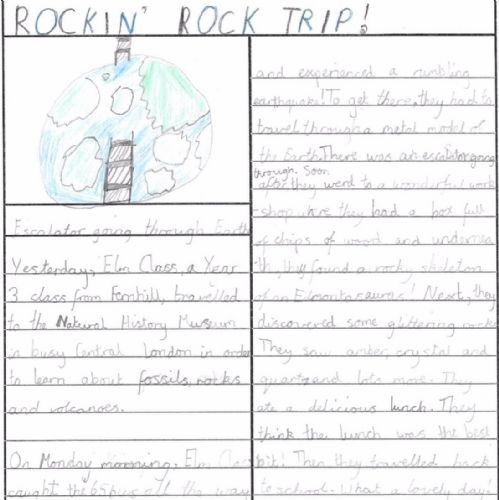 ROCKIN' ROCK TRIP!
Escalator going through Earth
Yesterday, Elm Class, a Year
3 class from Fernhill, travelled
to the Natural History Museum
in busy Central London in order
to learn about fossils, rocks
and volcanoes.
On Monday morning, Elm Class
caught the 65 bus all the way
and experienced a rumbling
earthquake! To get there, they had to
travel through a metal model of
the Earth. There was an escalator going
through. Soon
after they went to a wonderful work
shop where they had a box full
of chips of wood and undernea
th, they found a rocky skeleton
of an Edmontosaurus! Next, they
discovered some glittering rocks.
They saw amber, crystal and
quartz and lots more. They
ate a delicious lunch. They
think the lunch was the best
bit! Then they travelled back
to school. What a lovely day!